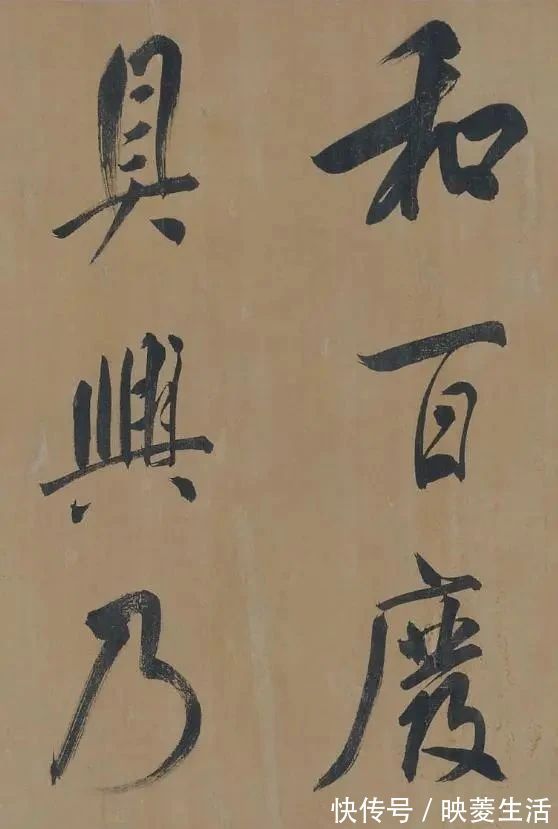 和百廢
具興乃
快传号/映菱生活